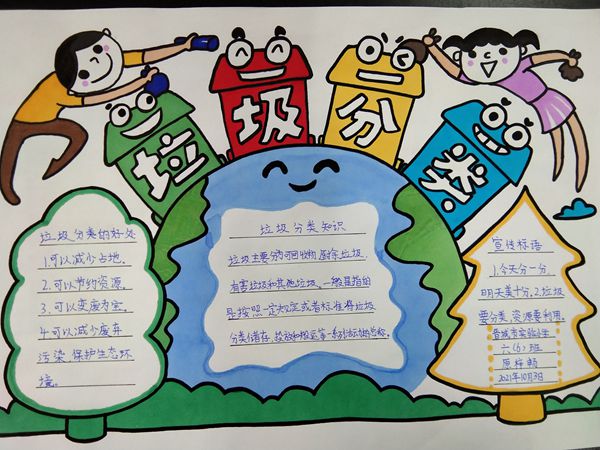 垃
圾
分
类
垃圾分类的好处
1.可以减少占地.
2.可以节约资源.
3.可以变废为宝.
4.可以减少废弃
污染,保护生态环
境。
垃圾分类知识
垃圾主要分为可回收物、厨余垃圾.
有害垃圾和其他垃圾.一般是指的
是按照一定规定或者标准将垃圾
分类储存、投放和搬运等一系列活动的总称.
宣传标语
1.今天分一分.
明天美十分.2.垃圾
要分类,资源要利用。
晋城市实验小学
六(6)班
原梓畅
2021年10月3日